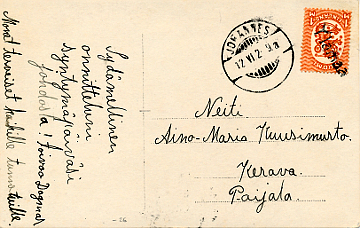 Sydämellinen
onnittelumi
syntymäpäiväsi
johdosta! Toivoo Dagmar
Monet terveiset kaikille tuttaville.
JOHANNES
Neiti
Aino-Maria Kuusimurto.
Kerava
Paijala.